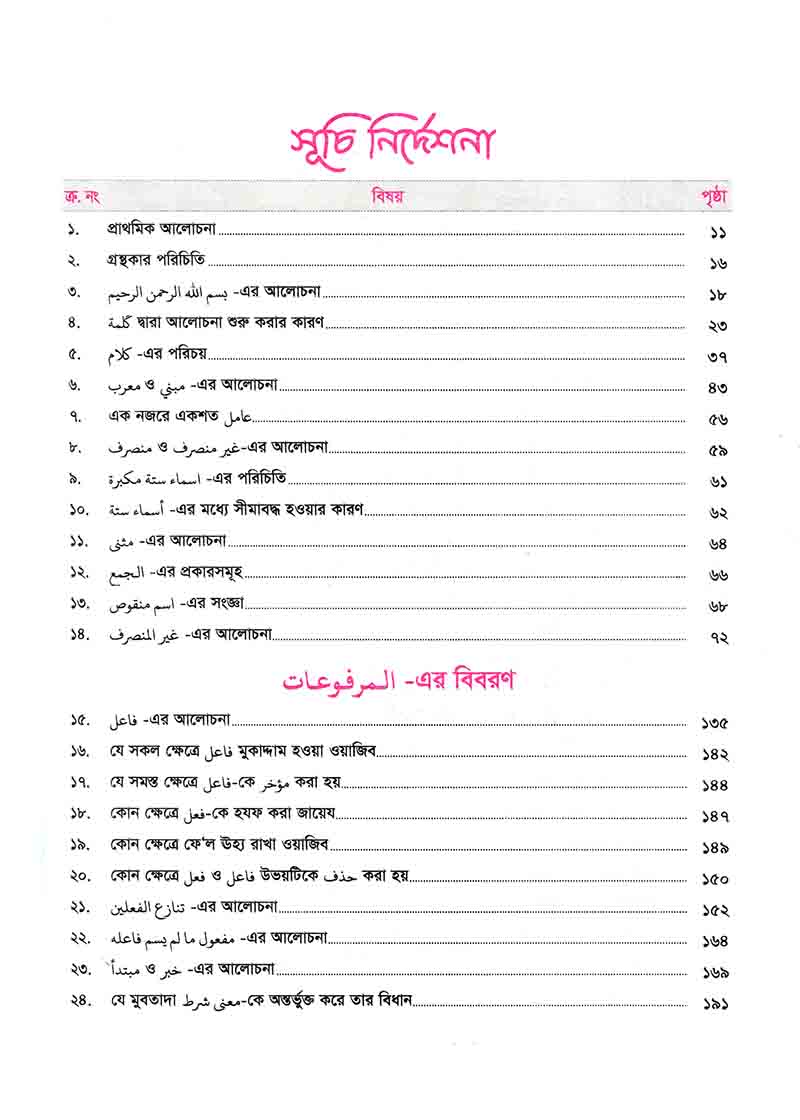 সূচি নির্দেশনা
ক্র. নং বিষয় পৃষ্ঠা
১. প্রাথমিক আলোচনা ১১
২. গ্রন্থকার পরিচিতি ১৬
৩. بسم الله الرحمن الرحيم -এর আলোচনা ১৮
৪. كلمة দ্বারা আলোচনা শুরু করার কারণ ২৩
৫. كلام -এর পরিচয় ৩৭
৬. معرب ও مبني -এর আলোচনা ৪৩
৭. এক নজরে একশত عامل ৫৬
৮. منصرف ও غير منصرف-এর আলোচনা ৫৯
৯. اسماء ستة مكبرة -এর পরিচিতি ৬১
১০. أسماء ستة -এর মধ্যে সীমাবদ্ধ হওয়ার কারণ ৬২
১১. مثنى -এর আলোচনা ৬৪
১২. الجمع -এর প্রকারসমূহ ৬৬
১৩. اسم منقوص -এর সংজ্ঞা ৬৮
১৪. غير المنصرف -এর আলোচনা ৭২
المرفوعات -এর বিবরণ
১৫. فاعل -এর আলোচনা ১৩৫
১৬. যে সকল ক্ষেত্রে فاعل মুকাদ্দাম হওয়া ওয়াজিব ১৪২
১৭. যে সমস্ত ক্ষেত্রে فاعل-কে مؤخر করা হয় ১৪৪
১৮. কোন ক্ষেত্রে فعل-কে হযফ করা জায়েয ১৪৭
১৯. কোন ক্ষেত্রে ফে'ল ঊহ্য রাখা ওয়াজিব ১৪৯
২০. কোন ক্ষেত্রে فعل ও فاعل উভয়টিকে حذف করা হয় ১৫০
২১. تنازع الفعلين -এর আলোচনা ১৫২
২২. مفعول ما لم يسم فاعله -এর আলোচনা ১৬৪
২৩. مبتدأ ও خبر -এর আলোচনা ১৬৯
২৪. যে মুবতাদা معنى شرط-কে অন্তর্ভুক্ত করে তার বিধান ১৯১